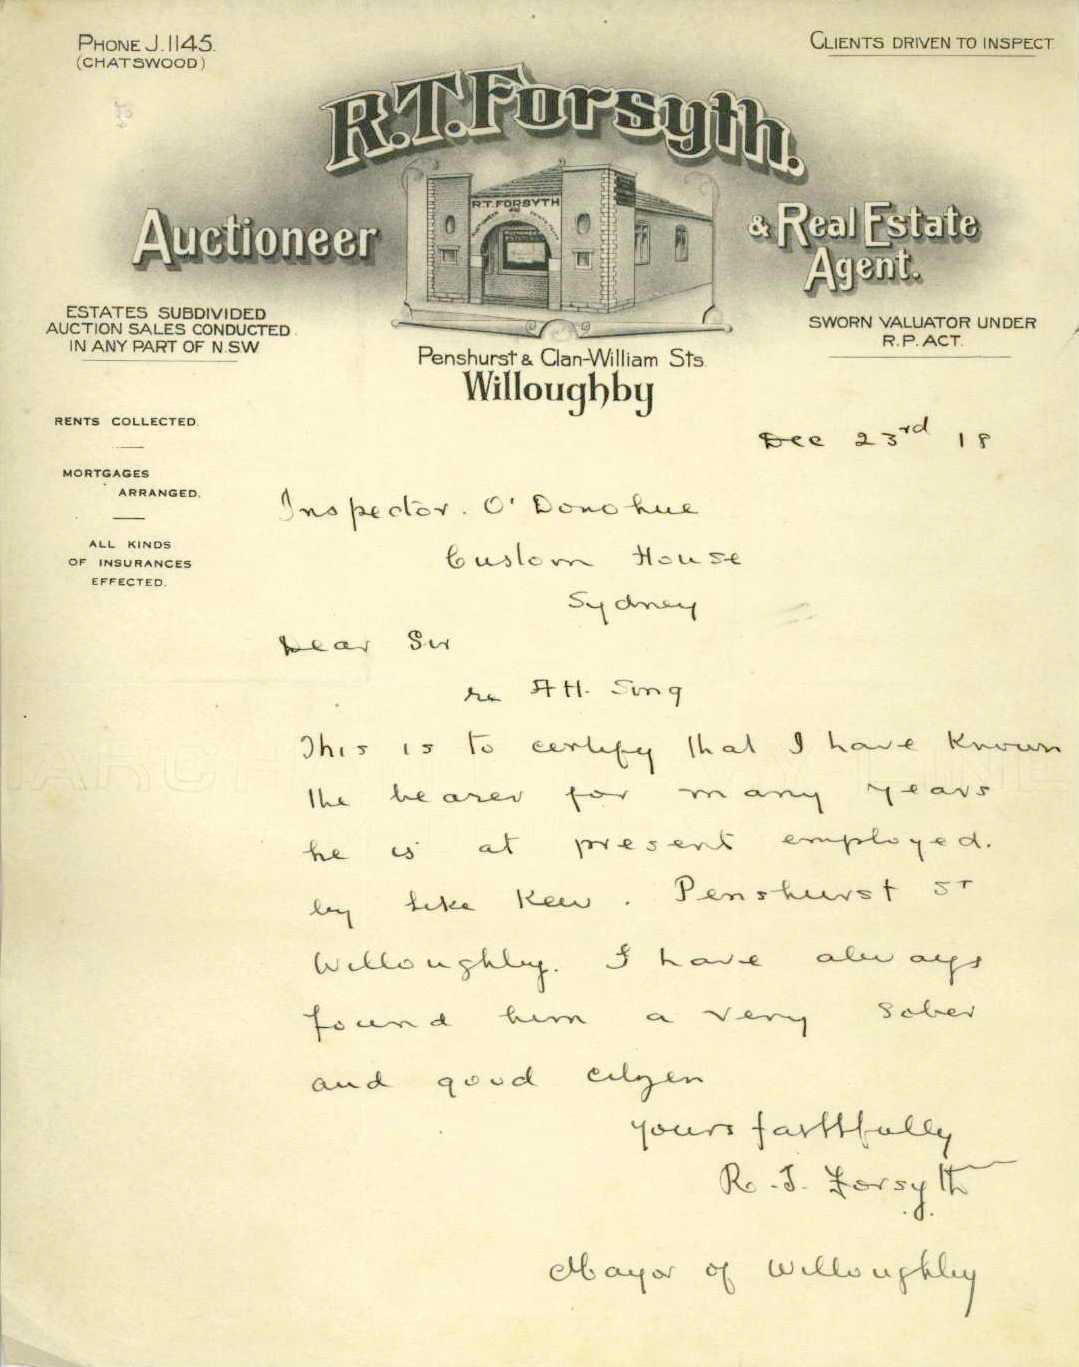 PHONE J.1145.
(CHATSWOOD)
CLIENTS DRIVEN TO INSPECT
R.T. Forsyth.
Auctioneer
& Real Estate
Agent.
R.T. FORSYTH
ESTATES SUBDIVIDED
AUCTION SALES CONDUCTED
IN ANY PART OF N.SW
SWORN VALUATOR UNDER
R.P. ACT.
Penshurst & Clan-William Sts.
Willoughby
RENTS COLLECTED.
MORTGAGES
ARRANGED.
ALL KINDS
OF INSURANCES
EFFECTED.
Dec 23rd 18
Inspector. O'Donohue
Custom House
Sydney
Dear Sir
re AH. Sing
This is to certify that I have known
the bearer for many years
he is at present employed.
by Kew. Penshurst St
Willoughby. I have always
found him a very sober
and good citizen
yours faithfully
R.T. Forsyth
Mayor of Willoughby